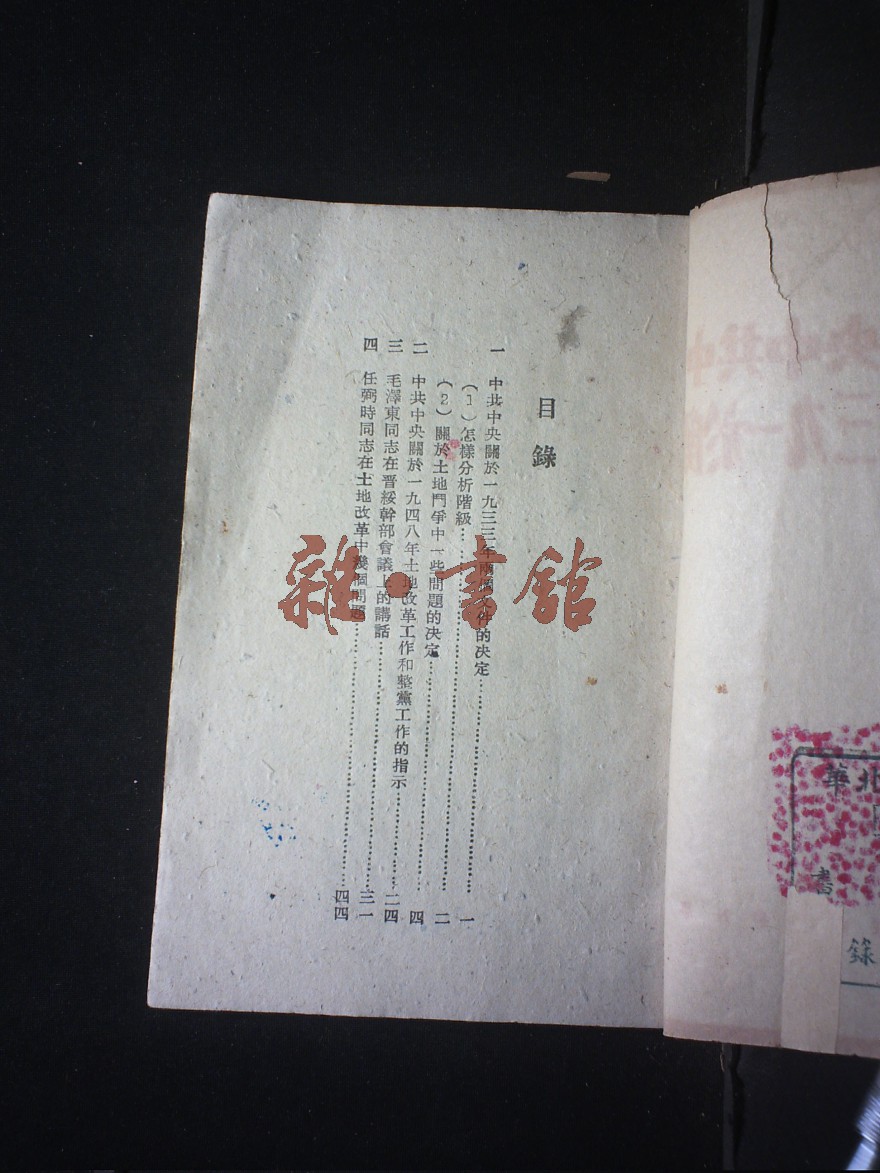 目錄
一 中共中央關於一九三三年兩個文件的决定……一
(1)怎樣分析階級……二
(2)關於土地鬥爭中一些問題的决定……四
二 中共中央關於一九四八年土地改革工作和整黨工作的指示……二四
三 毛澤東同志在晋綏幹部會議上的講話……三一
四 任弼時同志在土地改革中幾個問題……四四
雜·書館
華北
書
錄